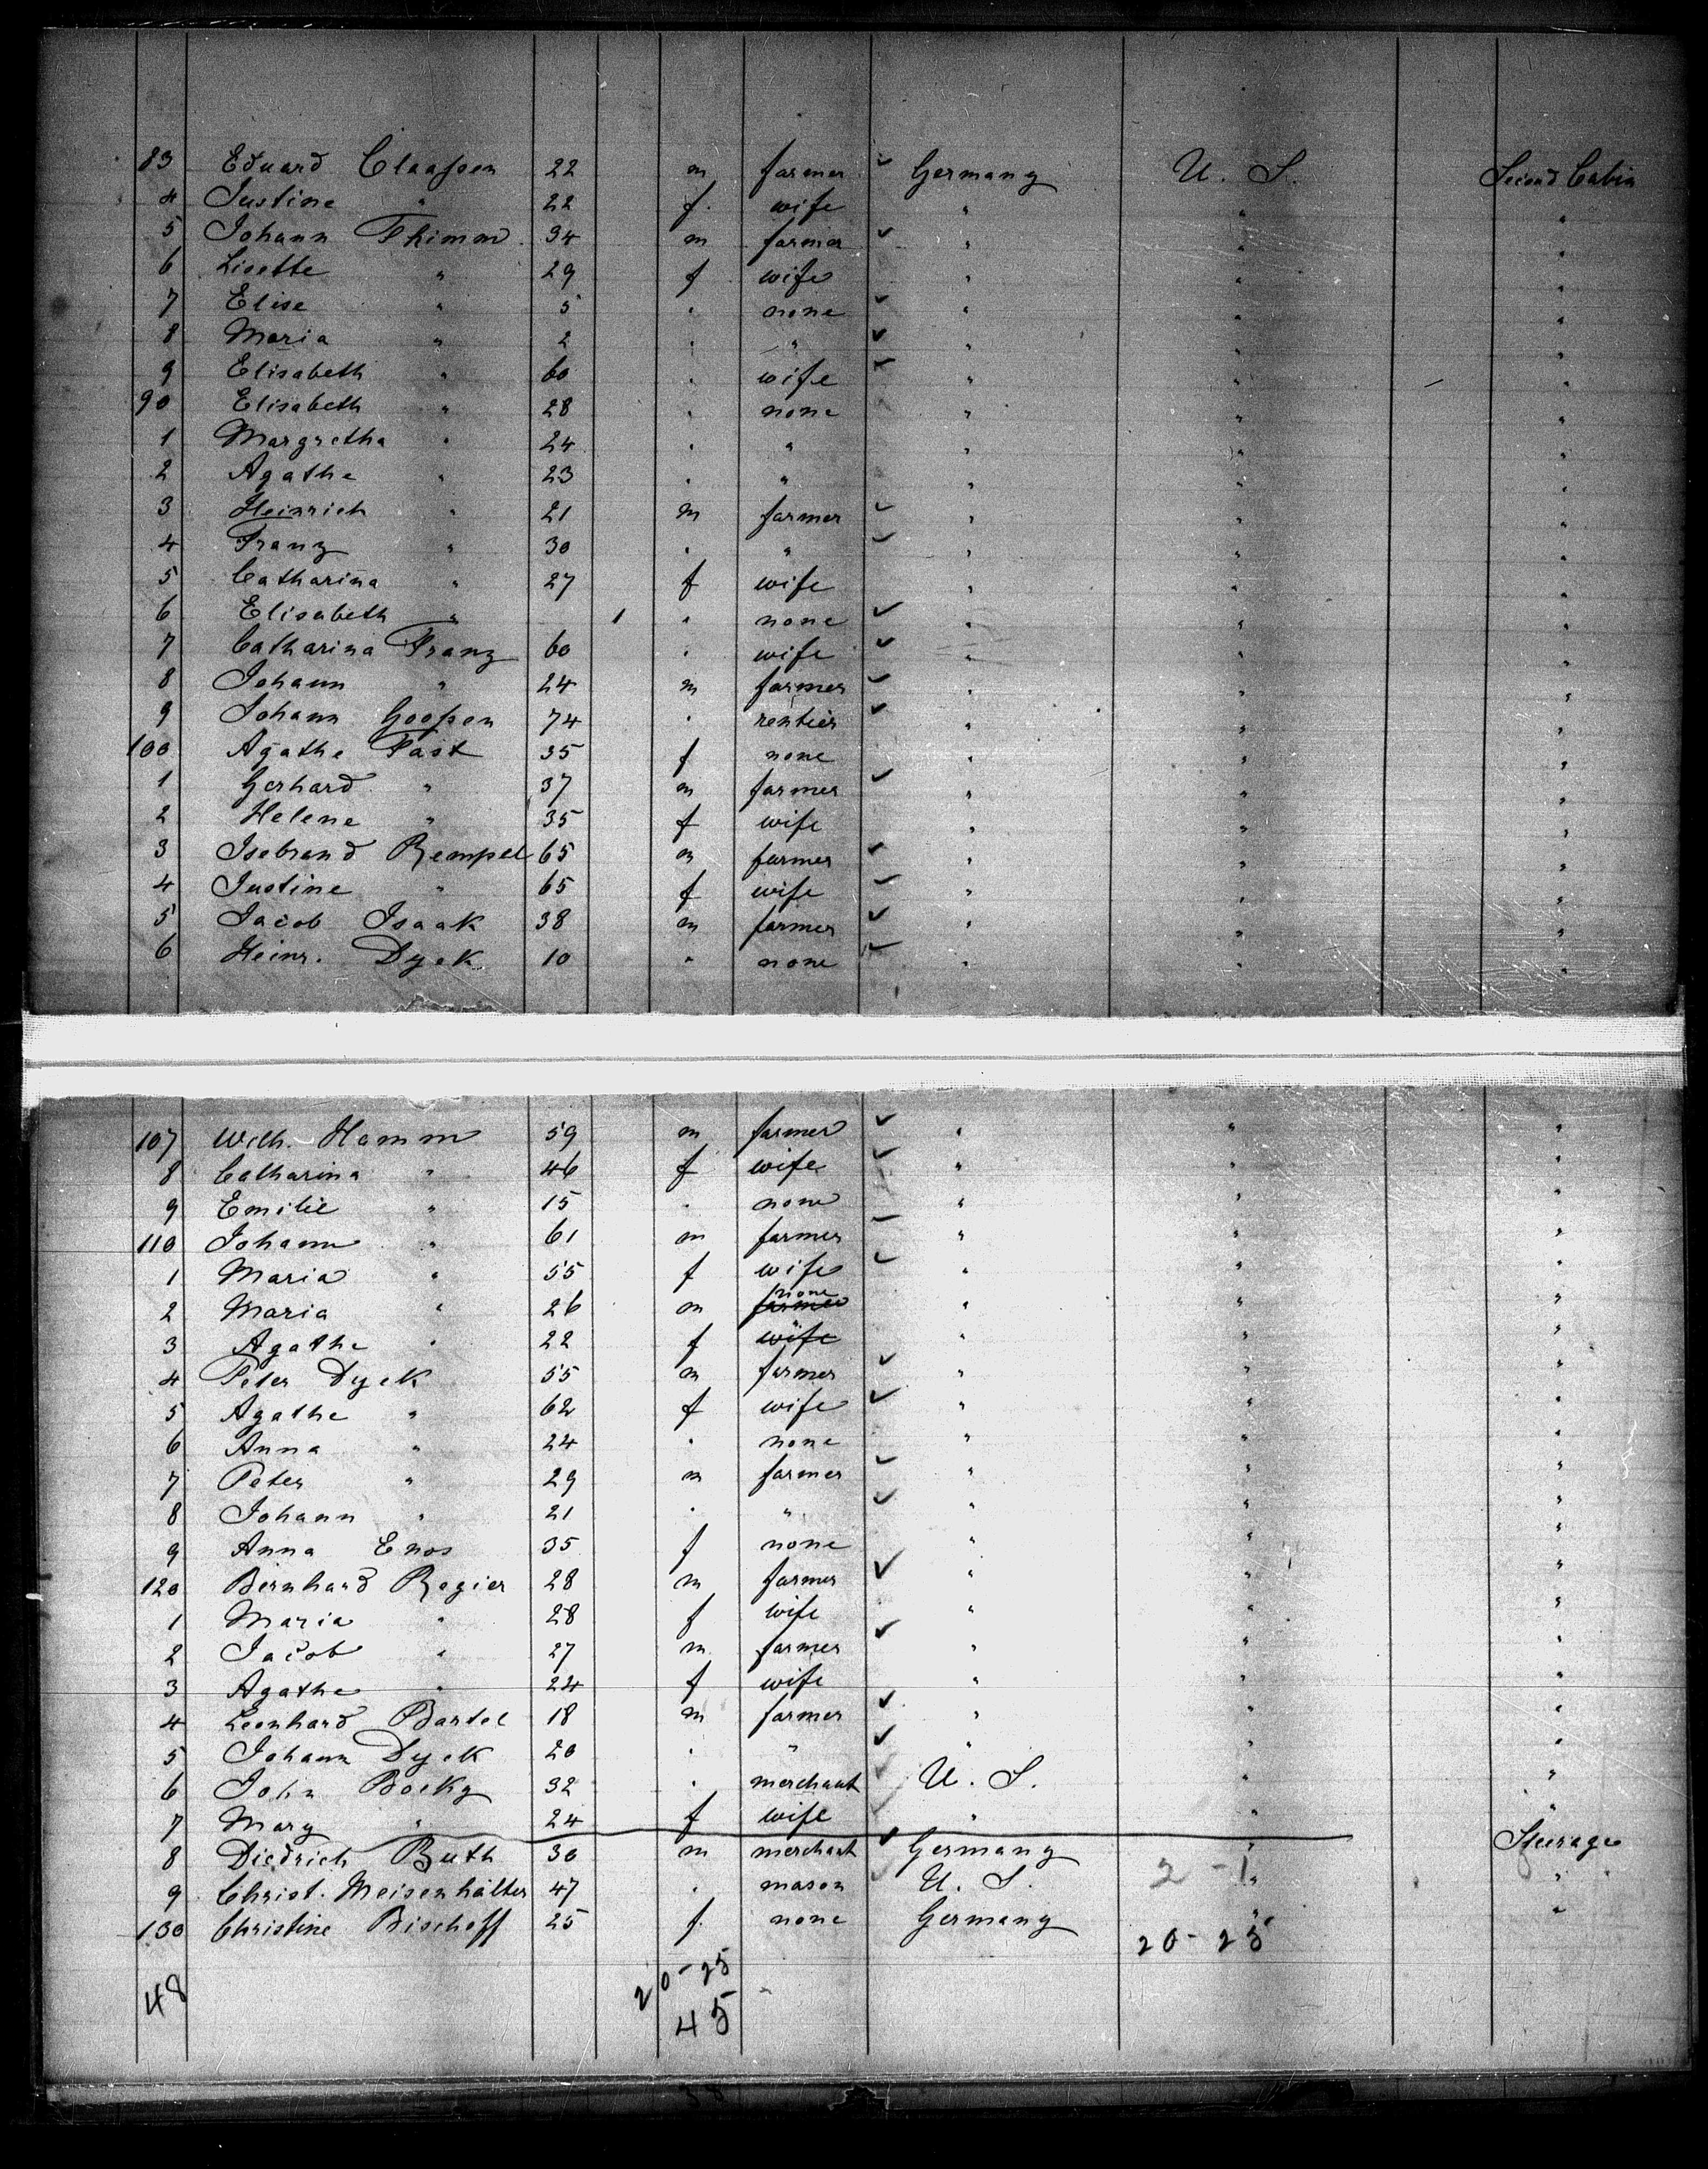 83 Eduard Claaßen 22 m farmer ✓ Germany U. S. Second Cabin
4 Justine " 22 f. wife " " "
5 Johann Thimm 34 m farmer ✓ " " "
6 Lisette " 29 f wife " " "
7 Elise " 5 " none ✓ " " "
8 Maria " 2 " " ✓ " " "
9 Elisabeth " 60 " wife ✓ " " "
90 Elisabeth " 28 " none " " "
1 Margretha " 24 " " " " "
2 Agathe " 23 " " " " "
3 Heinrich " 21 m farmer ✓ " " "
4 Franz " 30 " " ✓ " " "
5 Catharina " 27 f wife " " "
6 Elisabeth " 1 " none ✓ " " "
7 Catharina Franz 60 " wife ✓ " " "
8 Johann " 24 m farmer ✓ " " "
9 Johann Gooßen 74 " rentier ✓ " " "
100 Agathe Fast 35 f none " " "
1 Gerhard " 37 m farmer ✓ " " "
2 Helene " 35 f wife " " "
3 Isebrand Rempel 65 m farmer ✓ " " "
4 Justine " 65 f wife ✓ " " "
5 Jacob Isaak 38 m farmer ✓ " " "
6 Heinr. Dyck 10 " none ✓ " " "
107 Wilh. Hamm 59 m farmer ✓ " " "
8 Catharina " 46 f wife ✓ " " "
9 Emilie " 15 " none " " "
110 Johann " 61 m farmer ✓ " " "
1 Maria " 55 f wife ✓ " " "
2 Maria " 26 m farmer none " " "
3 Agathe " 22 f wife " " " "
4 Peter Dyck 55 m farmer ✓ " " "
5 Agathe " 62 f wife ✓ " " "
6 Anna " 24 " none " " "
7 Peter " 29 m farmer ✓ " " "
8 Johann " 21 " " ✓ " " "
9 Anna Enos 35 f none " " "
120 Bernhard Regier 28 m farmer ✓ " " "
1 Maria " 28 f wife " " "
2 Jacob " 27 m farmer ✓ " " "
3 Agathe " 24 f wife " " "
4 Leonhard Bartel 18 m farmer ✓ " " "
5 Johann Dyck 20 " " ✓ " " "
6 John 32 " merchant ✓ U. S. " "
7 Mary " 24 f wife ✓ " " "
8 Diedrich Buth 30 m merchant ✓ Germany " Steerage
9 Christ. Meisenhälter 47 " mason ✓ U. S. 2-1 " "
130 Christine Bischoff 25 f. none Germany " "
20-25
48 20-25
45
38